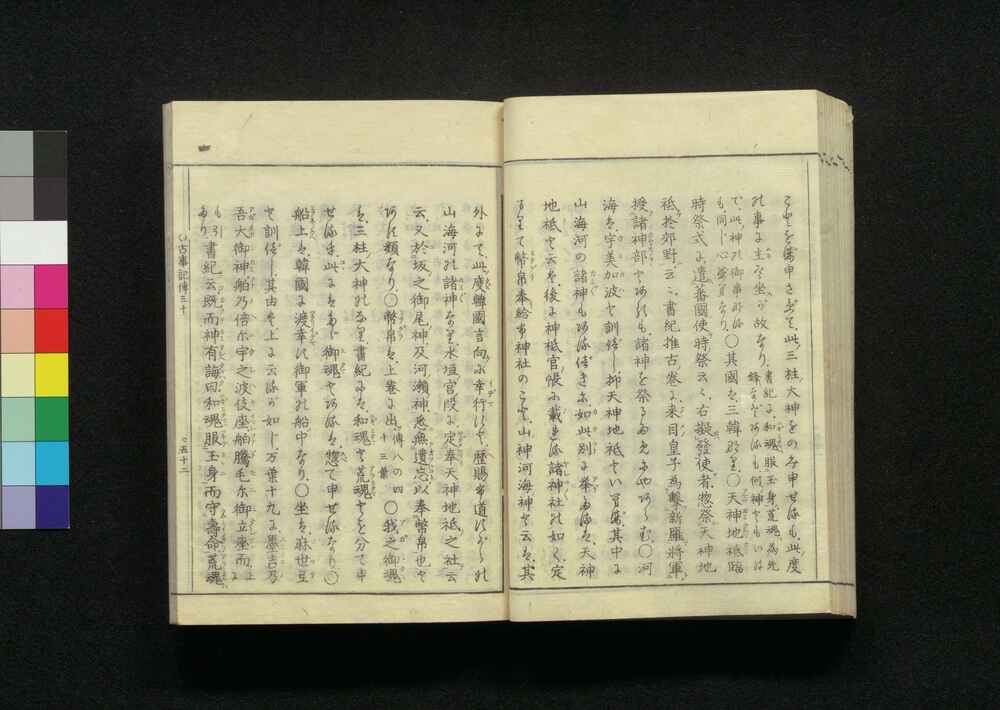 ことを儒申さずして、此三柱大神をのみ申せるも、此度
の事に主と坐が故なり、書紀に、和魂服玉身、荒魂為先
鋒などあるも、何神ともいはで、此神の御事なるも同じ心ばえなり、
○其國は三韓なり、○天神地祇臨
時祭式に、遣蕃國使時祭云々、右擬發使者、惣祭天神地
祇於郊野云々、書紀推古巻に、來目皇子為撃新羅将軍、
授諸神部
海は宇美加波と訓べし、抑天神地祇といへば、其中に
山海河の諸神もあるべきに、如此別に挙たるは、天神
地祇と云は、後に神祇官帳に載れる諸神社の如く、定
まりて幣帛奉給ふ神社のこと、山神河海神と云は、其
外にて、此度韓國言向に幸行につきて、歴賜ふ道すがらの
山海河の諸神なり、水垣宮段に、定奉天神地祇之社云
云、又於坂之御尾神及河瀬神、悉無遺忘以奉幣帛也と
ある類なり、○幣帛は、上巻に出、傳八の四十三葉○我之御魂
は、三柱大神のなり、書紀には、和魂と荒魂とを分て申
せるを、此にはたゞ御魂とあるは、惣て申せるなり、○
船上は、韓國に渡幸す御軍の船中なり、○坐は、麻世弖
と訓べし、其由は上に云るが如し、万葉十九に、墨吉乃
吾大御神、舶乃倍尓宇之波伎座、舶騰毛尓御立座而、上に
も引り書紀云、既而神有誨曰、和魂服玉身而守壽命、荒魂
○古事記傳三十
○五十二